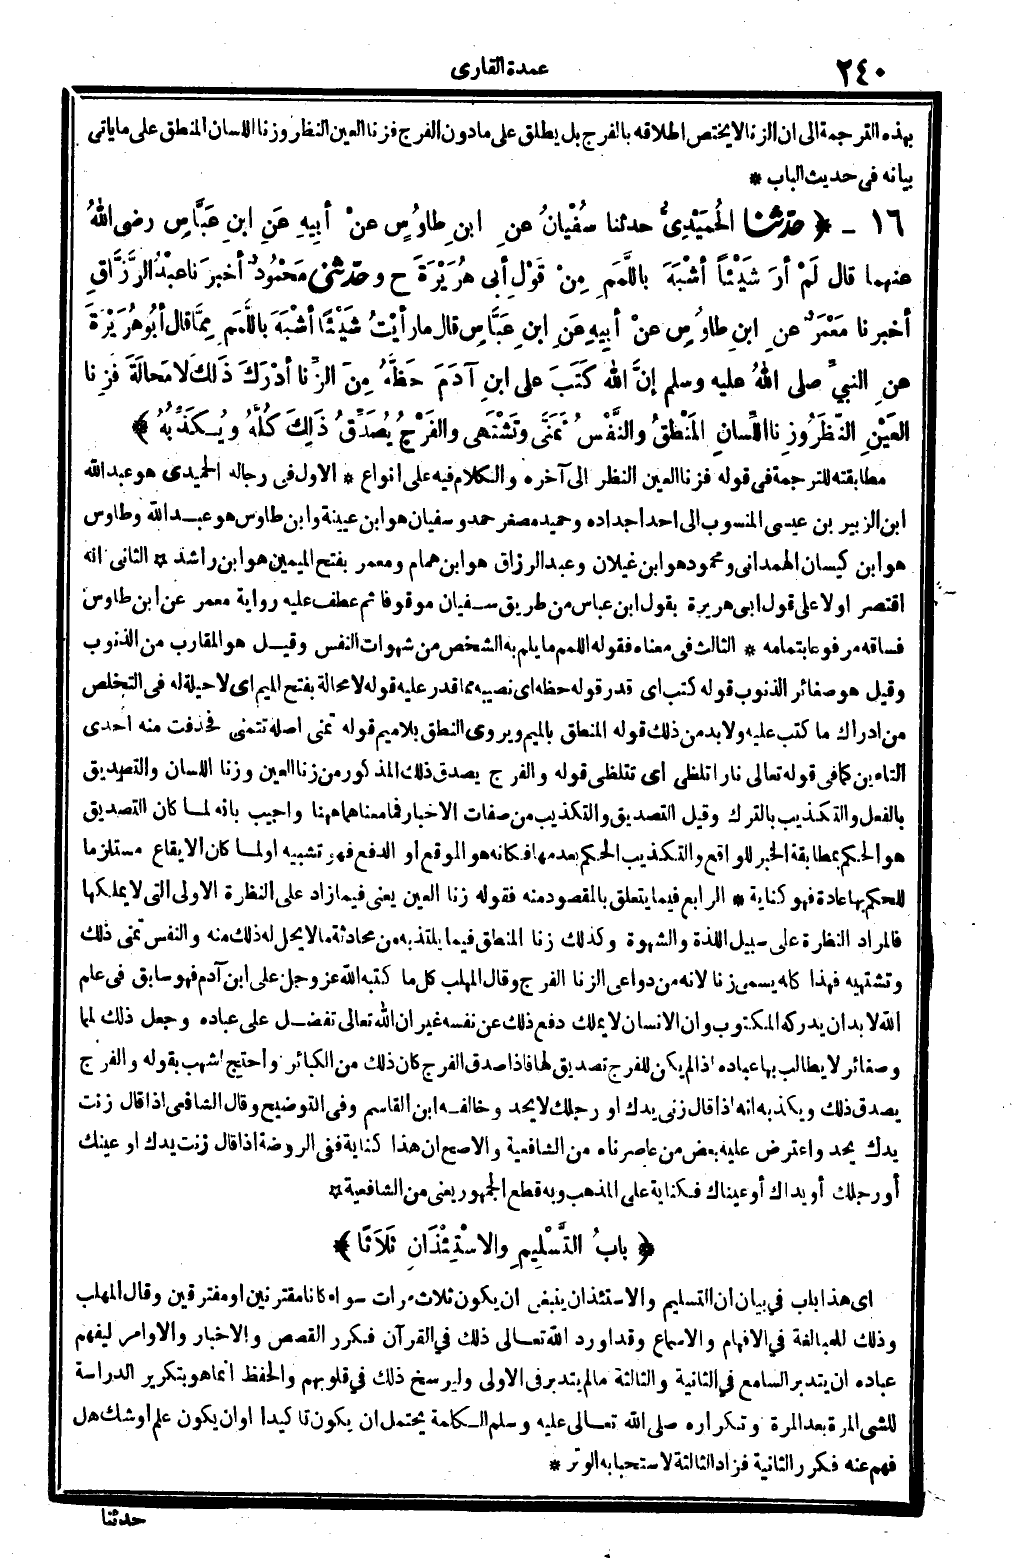 ٢٤٠
عمدة القارى
بهذه الترجمة الى ان الزنا لا يختص اطلاقه بالفرج بل يطلق على مادون الفرج فزنا العين النظر وزنا اللسان المنطق على ما يأتى
بيانه فى حديث الباب *
١٦ - ﴿ حَدَّثَنَا الْحُمَيْدِىُّ حدثنا سُفْيَانُ عنِ ابنِ طاوُسٍ عنْ أبِيهِ عَنِ ابنِ عَبَّاسٍ رضى اللهُ
عنهما قال لَمْ أرَ شَيْئاً أشْبَهَ باللَّمَمِ مِنْ قَوْلِ أبى هُرَيْرَةَ ح وحَدَّثَنى مَحْمُودٌ أخبرَنا عبْدُ الرَّزَّاقِ
أخبرنا مَعْمَرٌ عنِ ابنِ طاوُسٍ عنْ أبِيهِ عَنِ ابنِ عَبَّاسٍ قال مارأيْتُ شَيْئاً أشْبَهَ باللَّمَمِ مِمَّا قال أبُو هُرَيْرَةَ
عنِ النبيِّ صلى اللهُ عليه وسلم إنَّ اللهَ كَتَبَ على ابنِ آدَمَ حَظَّهُ مِنَ الزِّنا أدْرَكَ ذَلكَ لا مَحالَةَ فَزِنا
العَيْنِ النَّظَرُ وزِنا اللِّسانِ المَنْطِقُ والنَّفْسُ تَمَنَّى وتَشْتَهى والفَرْجُ يُصَدِّقُ ذَلِكَ كُلَّهُ ويُكَذِّبُهُ ﴾
مطابقته للترجمة فى قوله فزنا العين النظر الى آخره والكلام فيه على انواع * الاول فى رجاله الحميدى هو عبدالله
ابن الزبير بن عيسى المنسوب الى احد اجداده وحميد مصغر حمد وسفيان هو ابن عيينة وابن طاوس هو عبد الله وطاوس
هو ابن كيسان الهمدانى ومحمود هو ابن غيلان وعبد الرزاق هو ابن همام ومعمر بفتح الميمين هو ابن راشد * الثانى انه
اقتصر اولا على قول ابى هريرة بقول ابن عباس من طريق سفيان موقوفا ثم عطف عليه رواية معمر عن ابن طاوس
فساقه مرفوعا بتمامه * الثالث فى معناه فقوله اللمم ما يلم به الشخص من شهوات النفس وقيل هو المقارب من الذنوب
وقيل هو صغائر الذنوب قوله كتب اى قدر قوله حظه اى نصيبه مما قدر عليه قوله لا محالة بفتح الميم اى لا حيلة له فى التخلص
من ادراك ما كتب عليه ولا بد من ذلك قوله المنطق بالميم ويروى النطق بلا ميم قوله تمنى اصله تتمنى فحذفت منه احدى
التاءين كما فى قوله تعالى نارا تلظى اى تتلظى قوله والفرج يصدق ذلك المذكور من زنا العين وزنا اللسان والتصديق
بالفعل والتكذيب بالترك وقيل التصديق والتكذيب من صفات الاخبار فما معناهما ههنا واجيب بانه لما كان التصديق
هو الحكم بمطابقة الخبر للواقع والتكذيب الحكم بعدمها فكانه هو الموقع او الدفع فهو تشبيه او لما كان الايقاع مستلزما
للحكم بها عادة فهو كناية * الرابع فيما يتعلق بالمقصود منه فقوله زنا العين يعنى فيما زاد على النظرة الاولى التى لا يملكها
فالمراد النظرة على سبيل اللذة والشهوة وكذلك زنا المنطق فيما يلتذ به من محادثة ما لا يحل له ذلك منه والنفس تمنى ذلك
وتشتهيه فهذا كله يسمى زنا لانه من دواعى الزنا الفرج وقال المهلب كل ما كتبه الله عز وجل على ابن آدم فهو سابق فى علم
الله لا بد ان يدركه المكتوب وان الانسان لا يملك دفع ذلك عن نفسه غير ان الله تعالى تفضل على عباده وجعل ذلك لمما
وصغائر لا يطالب بها عباده اذا لم يكن للفرج تصديق لها فاذا صدق الفرج كان ذلك من الكبائر واحتج اشهب بقوله والفرج
يصدق ذلك ويكذبه انه اذا قال زنى يدك او رجلك لا يحد وخالفه ابن القاسم وفى التوضيح وقال الشافعى اذا قال زنت
يدك يحد واعترض عليه بعض من عاصرناه من الشافعية والاصح ان هذا كناية ففى الروضة اذا قال زنت يدك او عينك
أو رجلك أو يداك أو عيناك فكناية على المذهب وبه قطع الجمهور يعنى من الشافعية *
﴿ بابُ التَّسْلِيمِ والاسْتِئْذَانِ ثَلاَثًا ﴾
اى هذا باب فى بيان ان التسليم والاستئذان ينبغى ان يكون ثلاث مرات سواء كانا مقترنين او مفترقين وقال المهلب
وذلك للمبالغة في الافهام والاسماع وقد اورد الله تعالى ذلك في القرآن فكرر القصص والاخبار والاوامر ليفهم
عباده ان يتدبر السامع في الثانية والثالثة مالم يتدبر فى الاولى وليرسخ ذلك في قلوبهم والحفظ انما هو بتكرير الدراسة
للشى المرة بعد المرة وتكراره صلى الله تعالى عليه وسلم الكلمة يحتمل ان يكون تاكيدا او ان يكون علم او شك هل
فهم عنه فكرر الثانية فزاد الثالثة لاستحبابه الوتر *
حدثنا